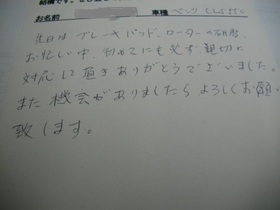 結構です。
お名前 車種 ベンツ CLS550
先日は ブレーキパッド、ローターの研磨、
お忙しい中 初めてにも拘らず 親切に
対応して頂きありがとうございました。
また機会がありましたらよろしくお願い
致します。